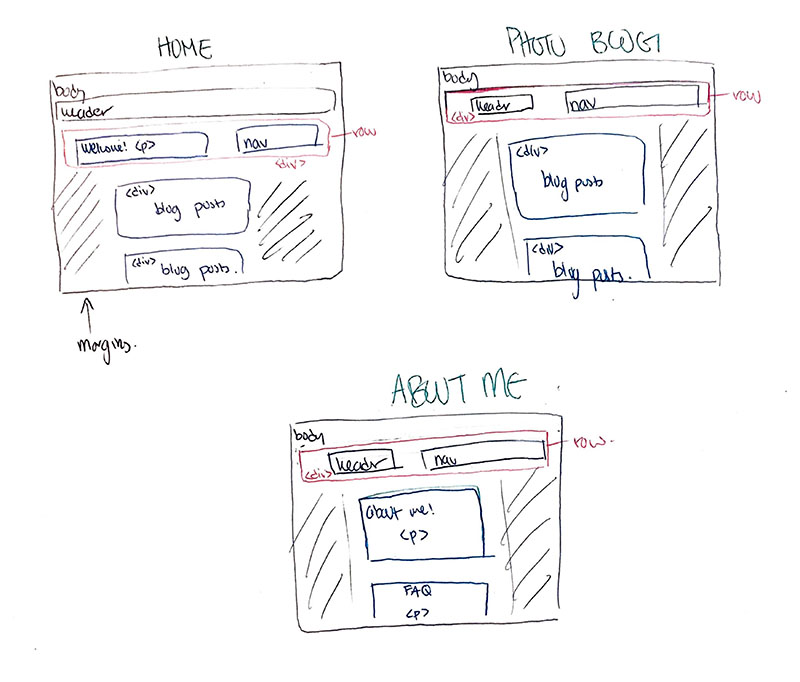 HOME
body
header
Welcome! <p>
nav
row
<div>
<div>
blog posts
<div>
blog posts.
margins.
PHOTO BLOG
body
<div>
header
nav
row
<div>
blog posts
<div>
blog posts.
ABOUT ME
body
<div>
header
nav
row.
about me!
<p>
FAQ
<p>